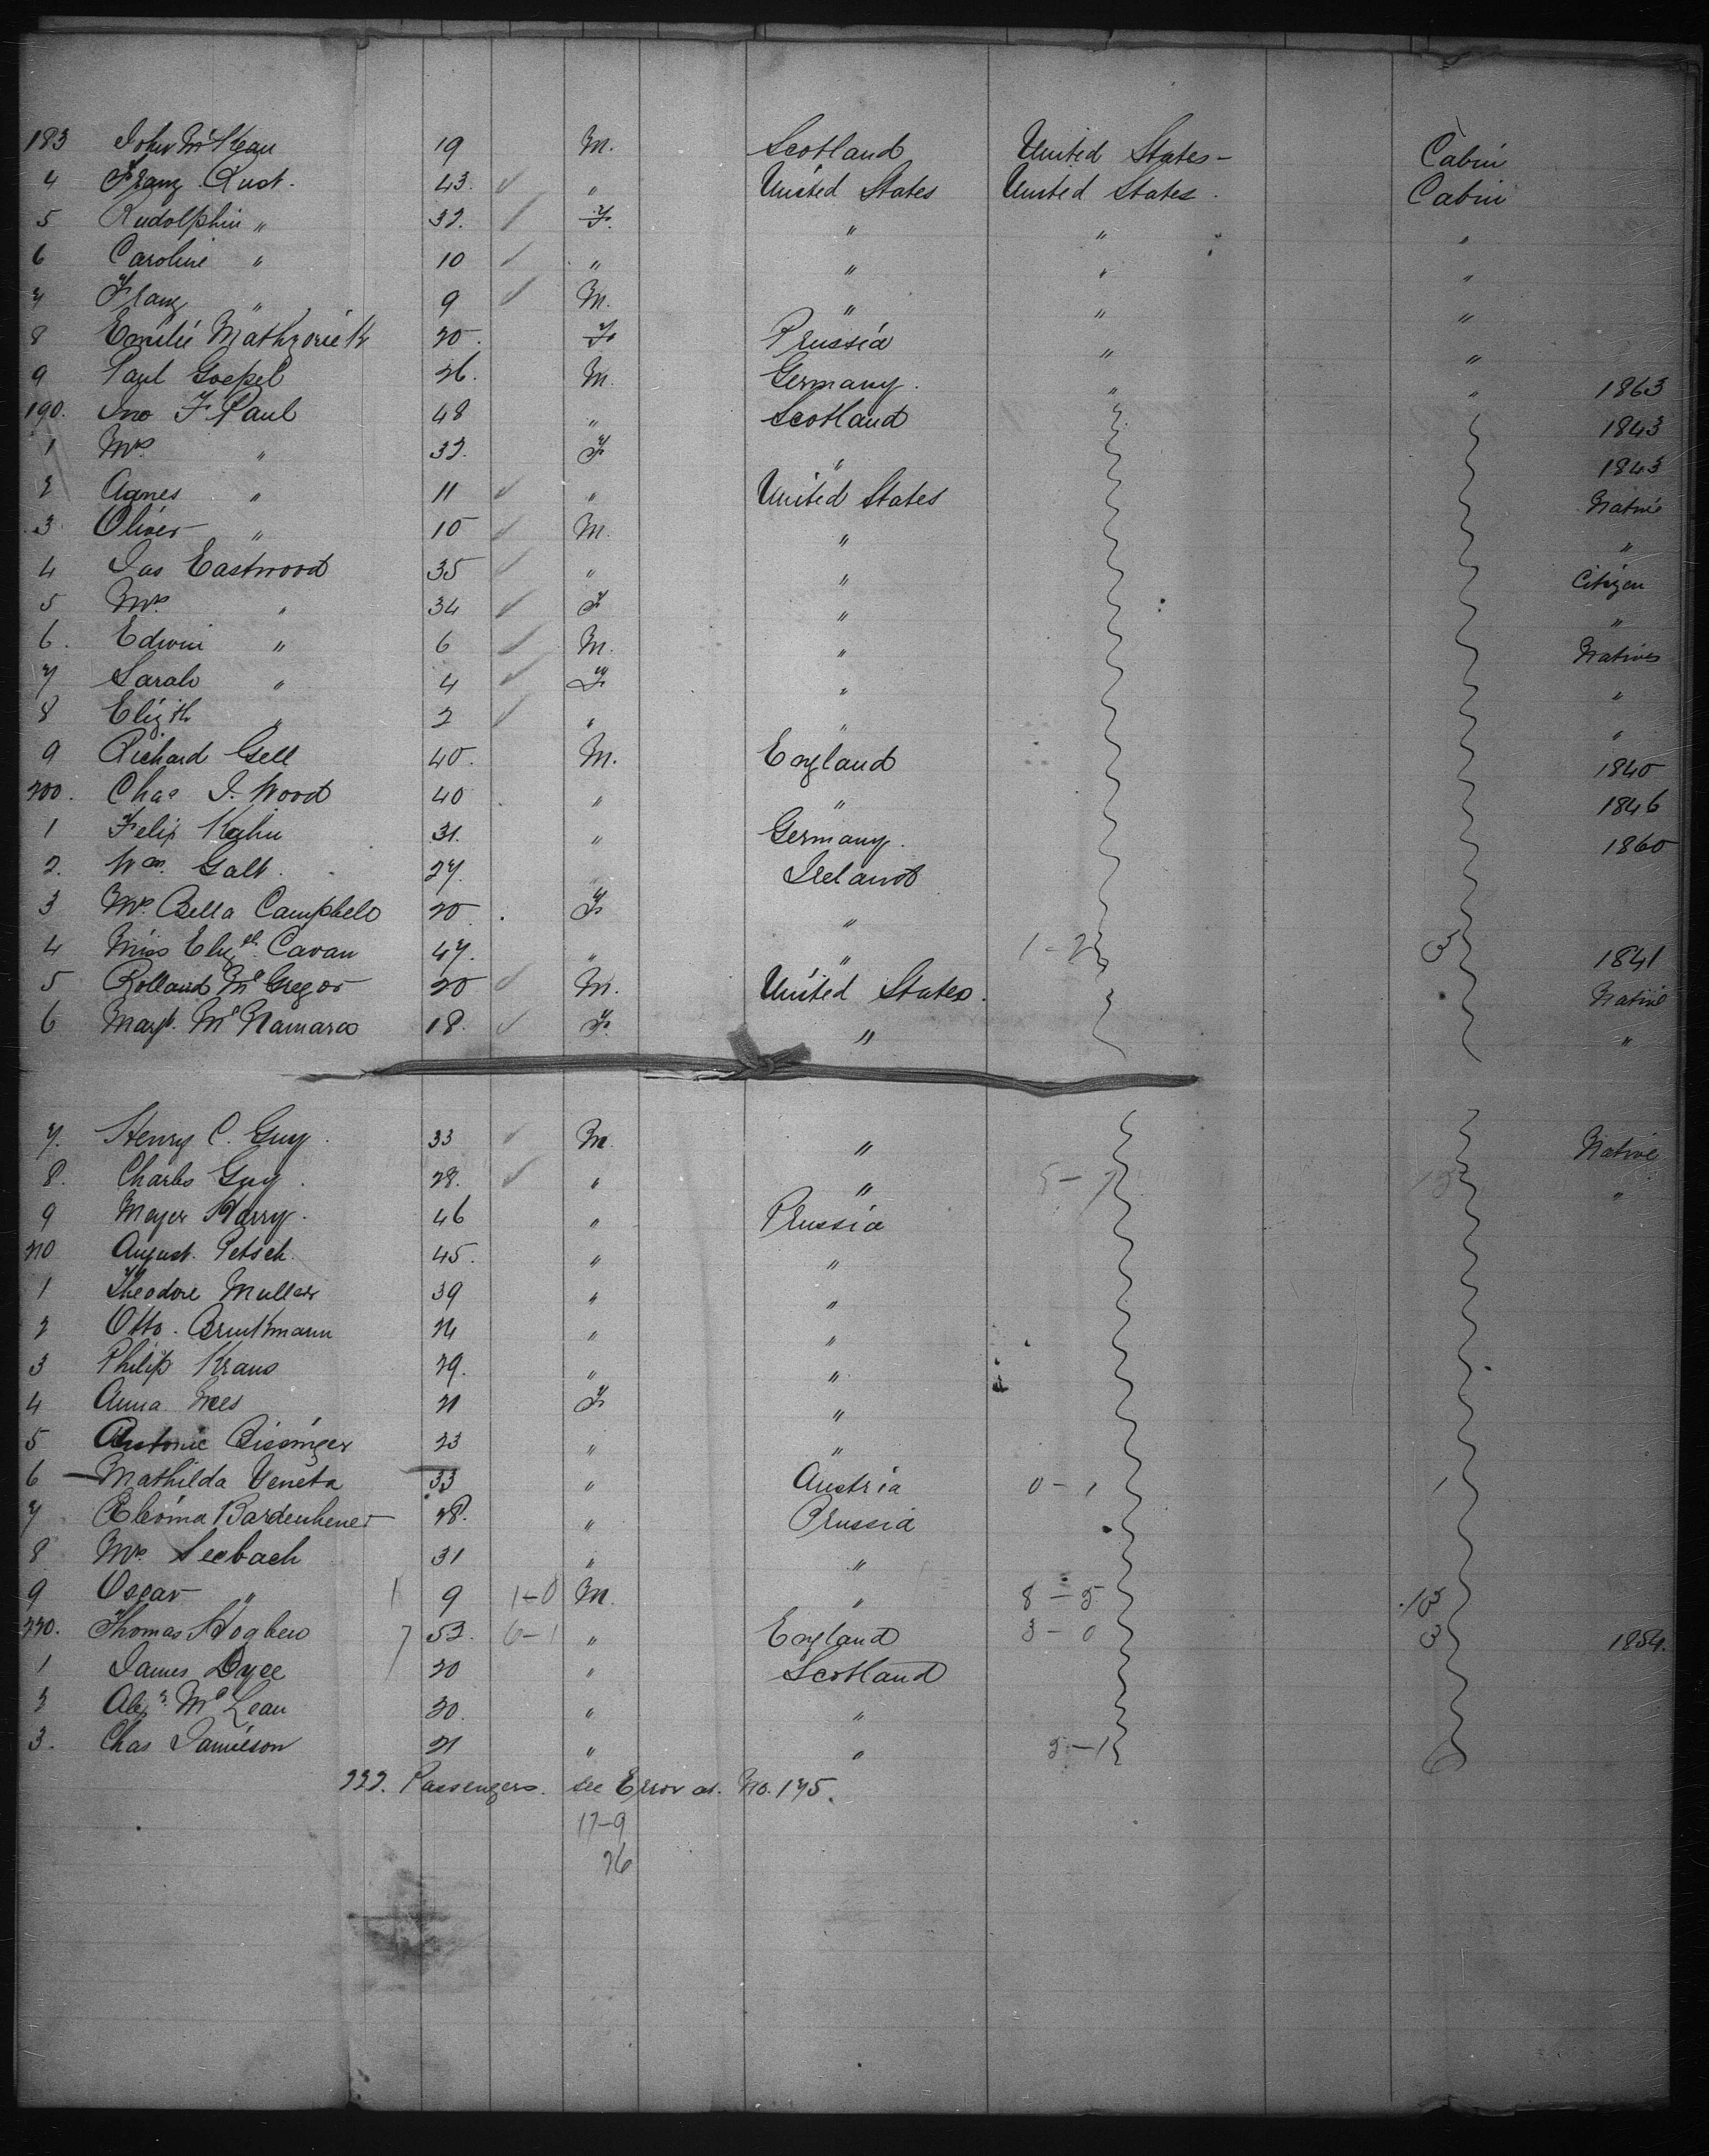 183 John McKean 19 M. Scotland United States - Cabin
4 Franz Rust. 43. ✓ " United States United States. Cabin
5 Rudolphin " 32. ✓ F. " " "
6 Caroline " 10 ✓ " " " "
7 Franz " 9 ✓ M. " " "
8 Emilie 20. F. Prussia " "
9 Paul Goepel 26. M. Germany. " " 1863
190. Jno F Paul 48 " Scotland 1843
1 Mrs " 32. F " 1843
2 Agnes " 11 ✓ " United States Native
3 Oliver " 10 ✓ M. " "
4 Jas Eastwood 35 ✓ " " Citizen
5 Mrs " 34 ✓ F " "
6. Edwin " 6 ✓ M. " Natives
7 Sarah " 4 ✓ F " "
8 Elizth " 2 ✓ " " "
9 Richard Gell 40. M. England 1840
200. Chas J. Wood 40. " " 1846
1 Felix Kahn 31. " Germany. 1860
2. Wm. Galt. 27. Ireland
3 Mrs Bella Campbell 20. F "
4 Miss Elizth Cavan 47. " " 1-2 3 1841
5 Rolland McGregor 20 ✓ M. United States. Native
6 Margt. McNamara 18. ✓ F. " "
7. Henry C. Guy. 33 ✓ M " Native
8. Charles Guy. 28. ✓ " " "
9 Meyer Harry. 46 " Prussia
210 August. Petsch. 45. " "
1 Theodore Muller 39 " "
2 Otto. Brinkmann 24 " "
3 Philip Kraus 29. " "
4 Anna Mees 21 F "
5 Antonie Bissinger 23 " "
6 Mathilda Veneta 33 " Austria 0-1 1
7 Bardenhener 28. " Prussia
8 Mrs Seebach 31 " "
9 Oscar " 1 9 1-0 M. " 8-5 13
220. Thomas Hogben 7 52. 6-1 " England 3-0 3 1854.
1 James Dyce 20 " Scotland
2 Alexr McLean 30. " "
3. Chas Jamieson 21 " " 5-1 6
222. Passengers. see Error at. No. 175.
17-9
26